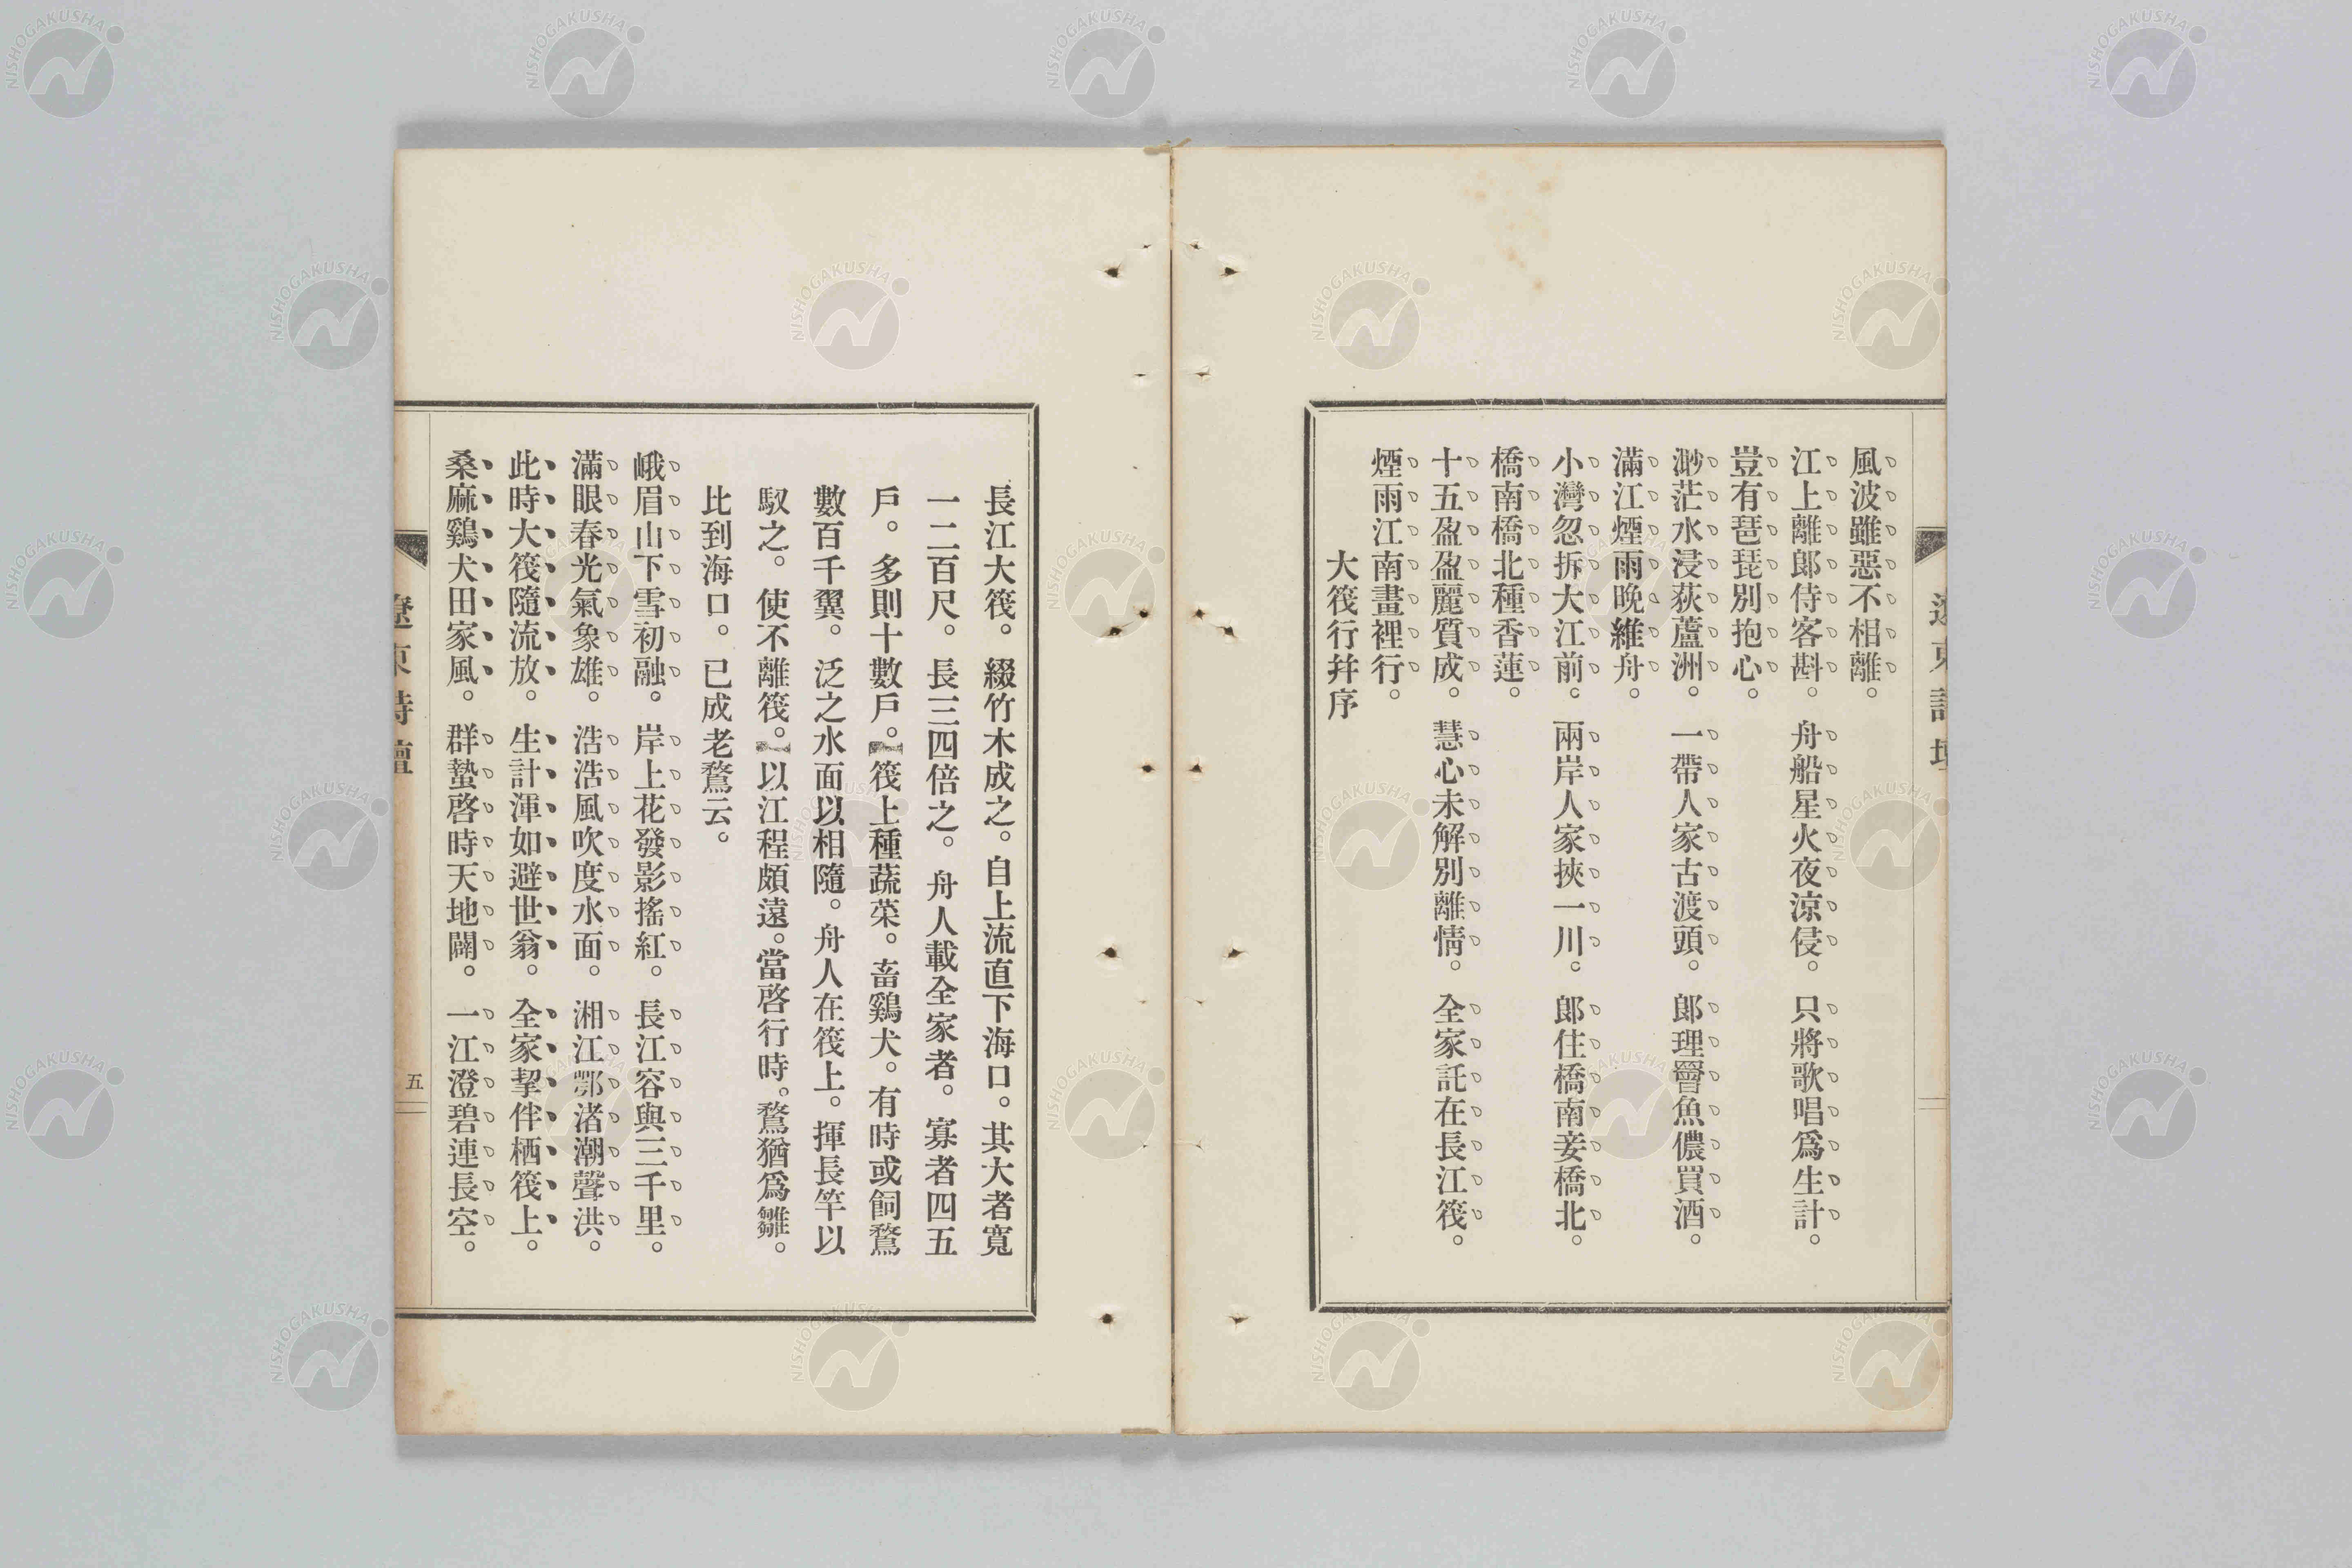 風波雖惡不相離。
江上離郞侍客斟。舟船星火夜涼侵。只將歌唱爲生計。
豈有琵琶別抱心。
渺茫水浸荻蘆洲。一帶人家古渡頭。郞理罾魚儂買酒。
滿江煙雨晩維舟。
小灣忽拆大江前。兩岸人家挾一川。郞住橋南妾橋北。
橋南橋北種香蓮。
十五盈盈麗質成。慧心未解別離情。全家託在長江筏。
煙雨江南畫裡行。
大筏行幷序
長江大筏。綴竹木成之。自上流直下海口。其大者寬
一二百尺。長三四倍之。舟人載全家者。寡者四五
戶。多則十數戶。筏上種蔬菜。畜鷄犬。有時或飼鶩
數百千翼。泛之水面以相隨。舟人在筏上。揮長竿以
馭之。使不離筏。以江程頗遠。當啓行時。鶩猶爲雛。
比到海口。已成老鶩云。
峨眉山下雪初融。岸上花發影搖紅。長江容與三千里。
滿眼春光氣象雄。浩浩風吹度水面。湘江鄂渚潮聲洪。
此時大筏隨流放。生計渾如避世翁。全家挈伴栖筏上。
桑麻鷄犬田家風。群蟄啓時天地闢。一江澄碧連長空。
遼東詩壇
五
NISHOGAKUSHA